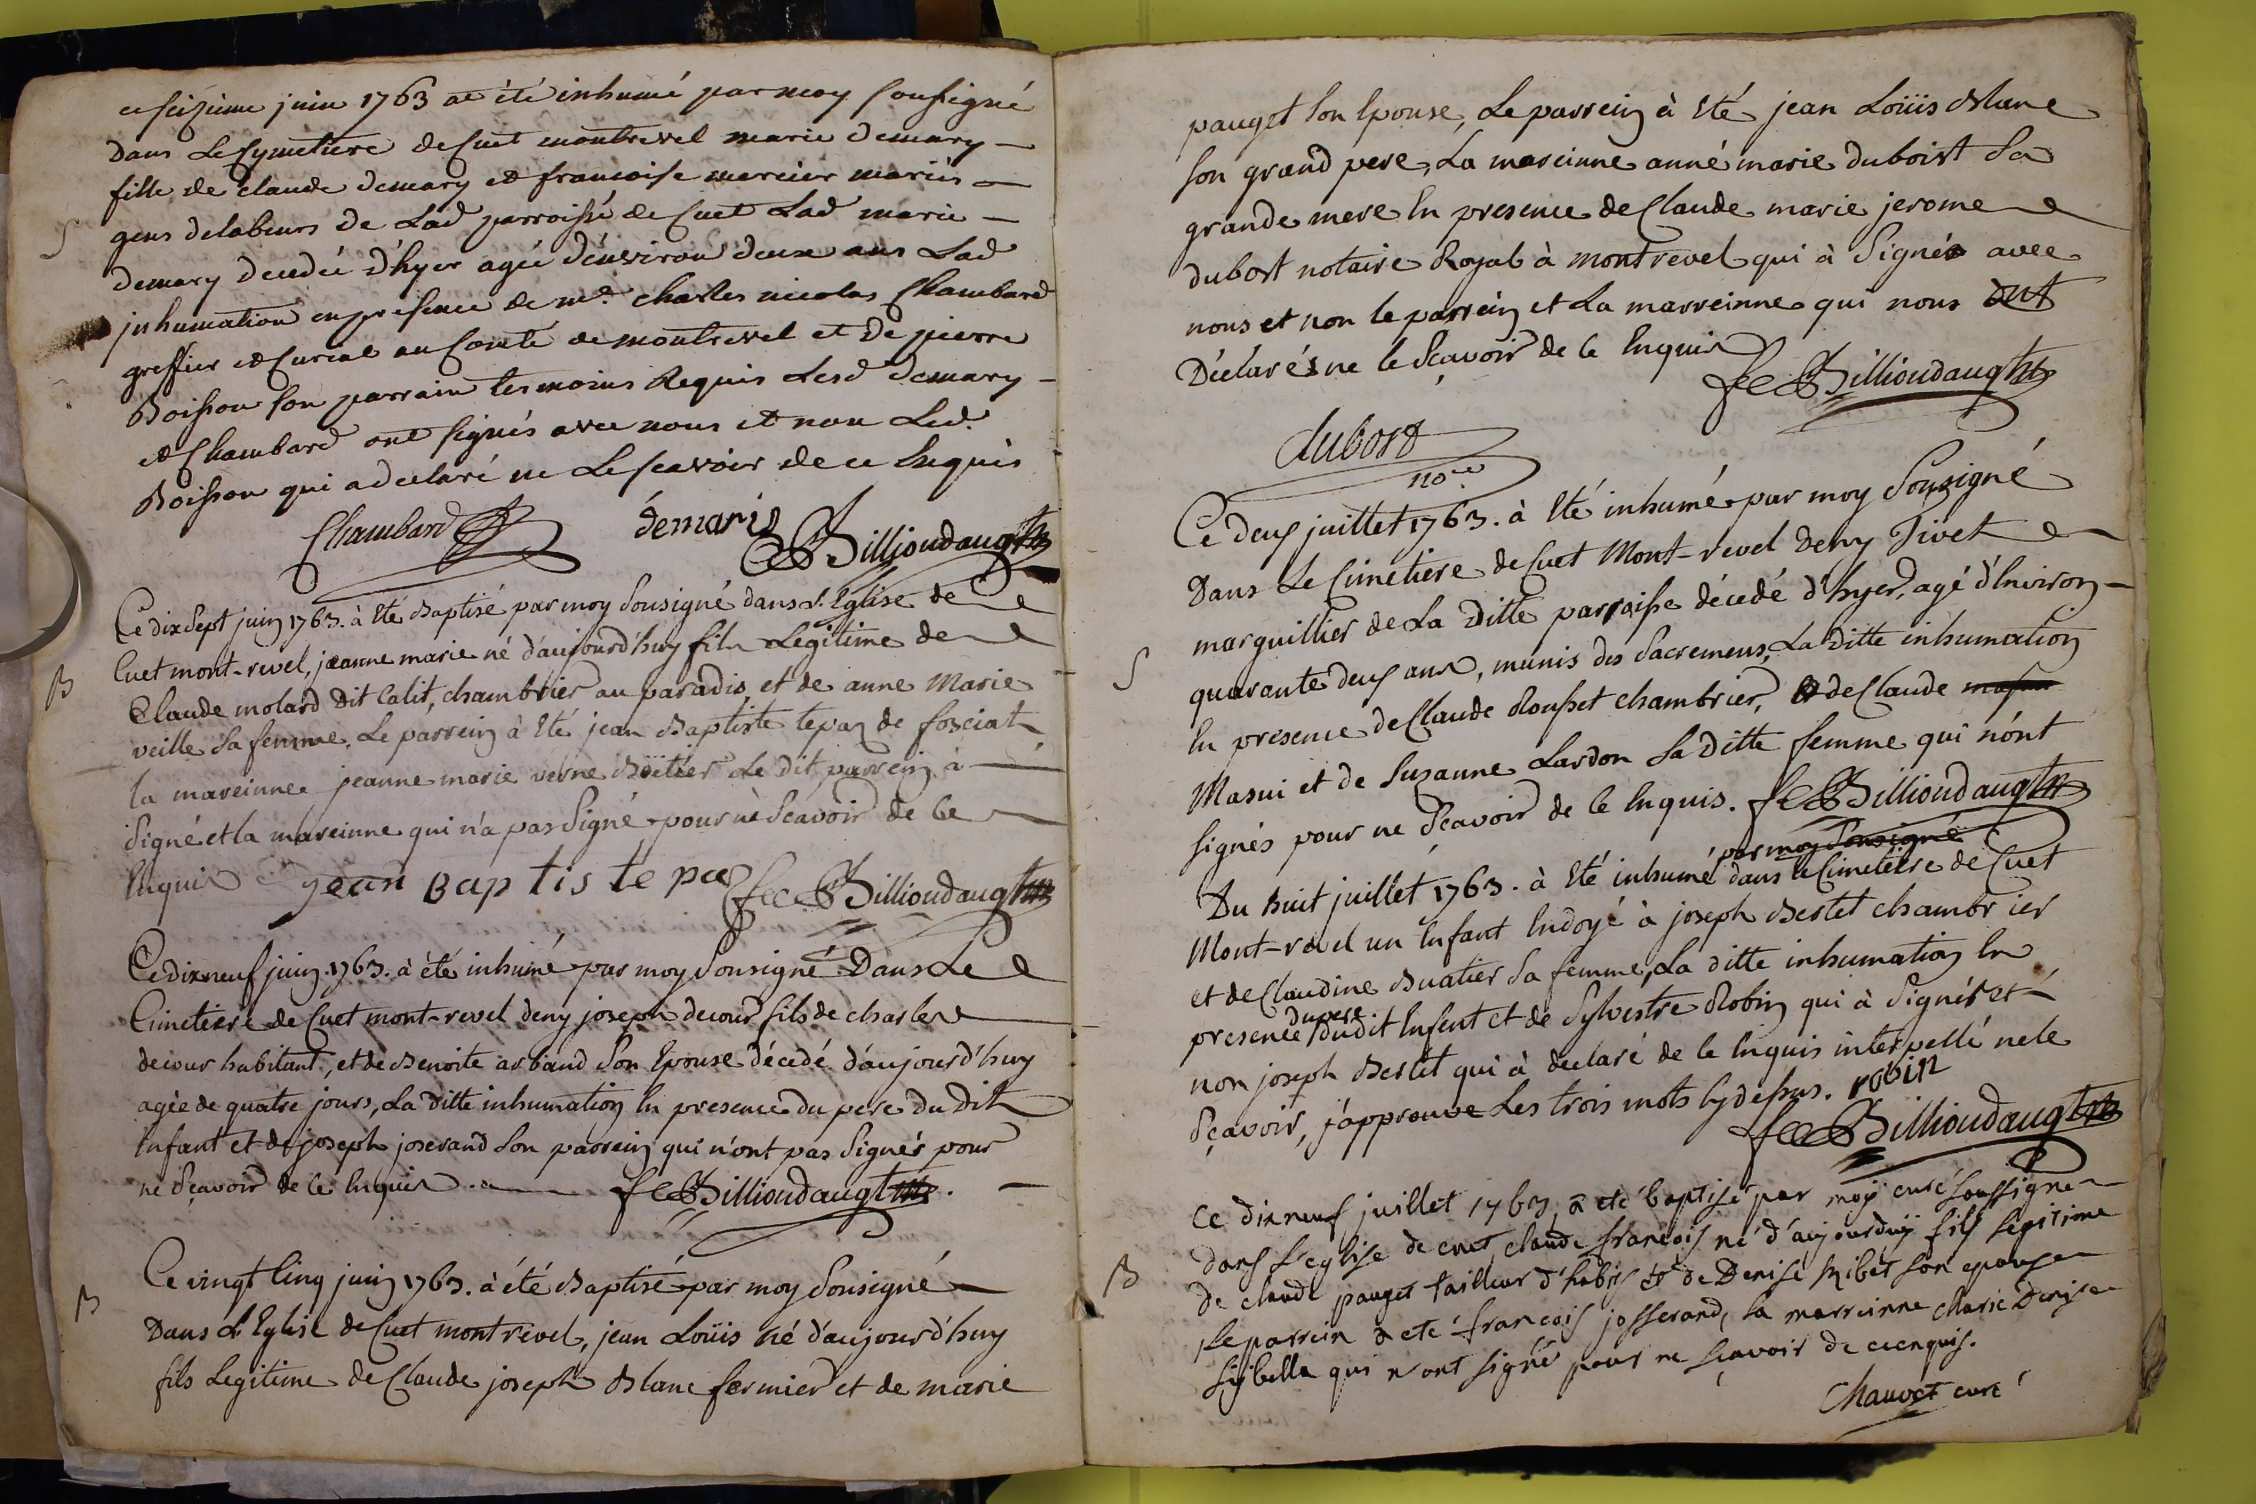 ce seizieme juin 1763 at été inhumé par moy sousigné
dans le cymetiere de Cuet montrevel marie demary
fille de claude demary et francoise mercier mariés
S
gens delabeurs de Lad parroisse de Cuet Lad marie
demary decedée d'hyer agée d'environ deux ans Lad
inhumation en presence de me. charles nicolas Chambard
greffier et curial au Comté de montrevel et de pierre
Boisson son parrain tesmoins Requis Lesd demary
et Chambard ont signés avec nous et non Led.
Boisson qui a declaré ne Le scavoir de ce Enquis
Chambard demaris fe Billioudaugte
Ce dix Sept juin 1763. à Eté Baptisé par moy Sousigné dans L'Eglise de
B
Cuet mont-revel, jeanne marie né d'aujourd'huy fils Legitime de
Claude molard Dit Calit, chambrier au paradis et de anne Marie
veille Sa femme. Le parrein à Eté jean Baptiste tepaz de fosciat
la mareinne jeanne marie verne Boîtier Le dit parrein à
Signé et la mareinne qui n'a pas Signé pour ne Scavoir de Ce
Enquis jean Baptis te paz fe Billioudaugte
Ce dix neuf juin 1763. à été inhumé par moy Sousigné Dans Le
Cimetiere de Cuet mont-revel deny joseph decour fils de charles
decour habitant, et de Benoite arband Son Epouse décédé d'aujourd'huy
agée de quatre jours, La ditte inhumation En presence du pere du Dit
Enfant et de joseph joserand Son parrein qui n'ont pas Signés pour
ne Sçavoir de Ce Enquis. fe Billioudaugte.
Ce vingt Cinq juin 1763. à été Baptisé par moy Sousigné
B
Dans L'Eglise de Cuet montrevel, jean Loüis né d'aujourd'huy
fils Legitime de Claude joseph Blanc fermier et de marie
pauget Son Epouse, Le parrein à Eté jean Loüis Blanc
Son grand pere, La mareinne anné marie duboist Sa
grande mere En presence de Claude marie jerome
dubost notaire Royal à montrevel qui à Signés avec
nous et non le parrein et La marreinne qui nous ont
Déclarés ne le Sçavoir de Ce Enquis
fe Billioudaugte
dubost
no.re
Ce deux juillet 1763. à Eté inhumé par moy Sousigné
Dans Le Cimetiere de Cuet Mont-revel Deny Tivet
marguillier de La Ditte parroisse décedé d'hyer, agé d'Environ
S
quarante deux ans, munis des Sacremens, La Ditte inhumation
En presence de Claude Rousset chambrier, et de Claude
Masui et de Suzanne Lardon Sa Ditte femme qui n'ont
Signés pour ne Sçavoir de Ce Enquis. fe Billioudaugte
par moy Sousigné
Du huit juillet 1763. à Eté inhumé dans le Cimetiere de Cuet
Mont-revel un Enfant Endoyé à joseph Bertet chambrier
et de Claudine Buatier Sa femme, La ditte inhumation En
du pere
presence dudit Enfent et de Sylvestre Robin qui à Signés et
non joseph Bertet qui à declaré de Ce Enquis interpellé ne le
Sçavoir, j'approuve Les trois mots Cy dessus. robin
fe Billioudaugte
Ce dixneuf juillet 1763, a eté baptisé par moy curé soussigné
dans l'eglise de cuet claude françois né d'aujourduy fils legitime
B
de claude pauget tailleur d'habis et de Denise sibet son epouse
le parrein a eté francois josserand, la marreinne marie Denise
sybelle qui n'ont signé pour ne sçavoir de ce enquis.
Chauvet curé